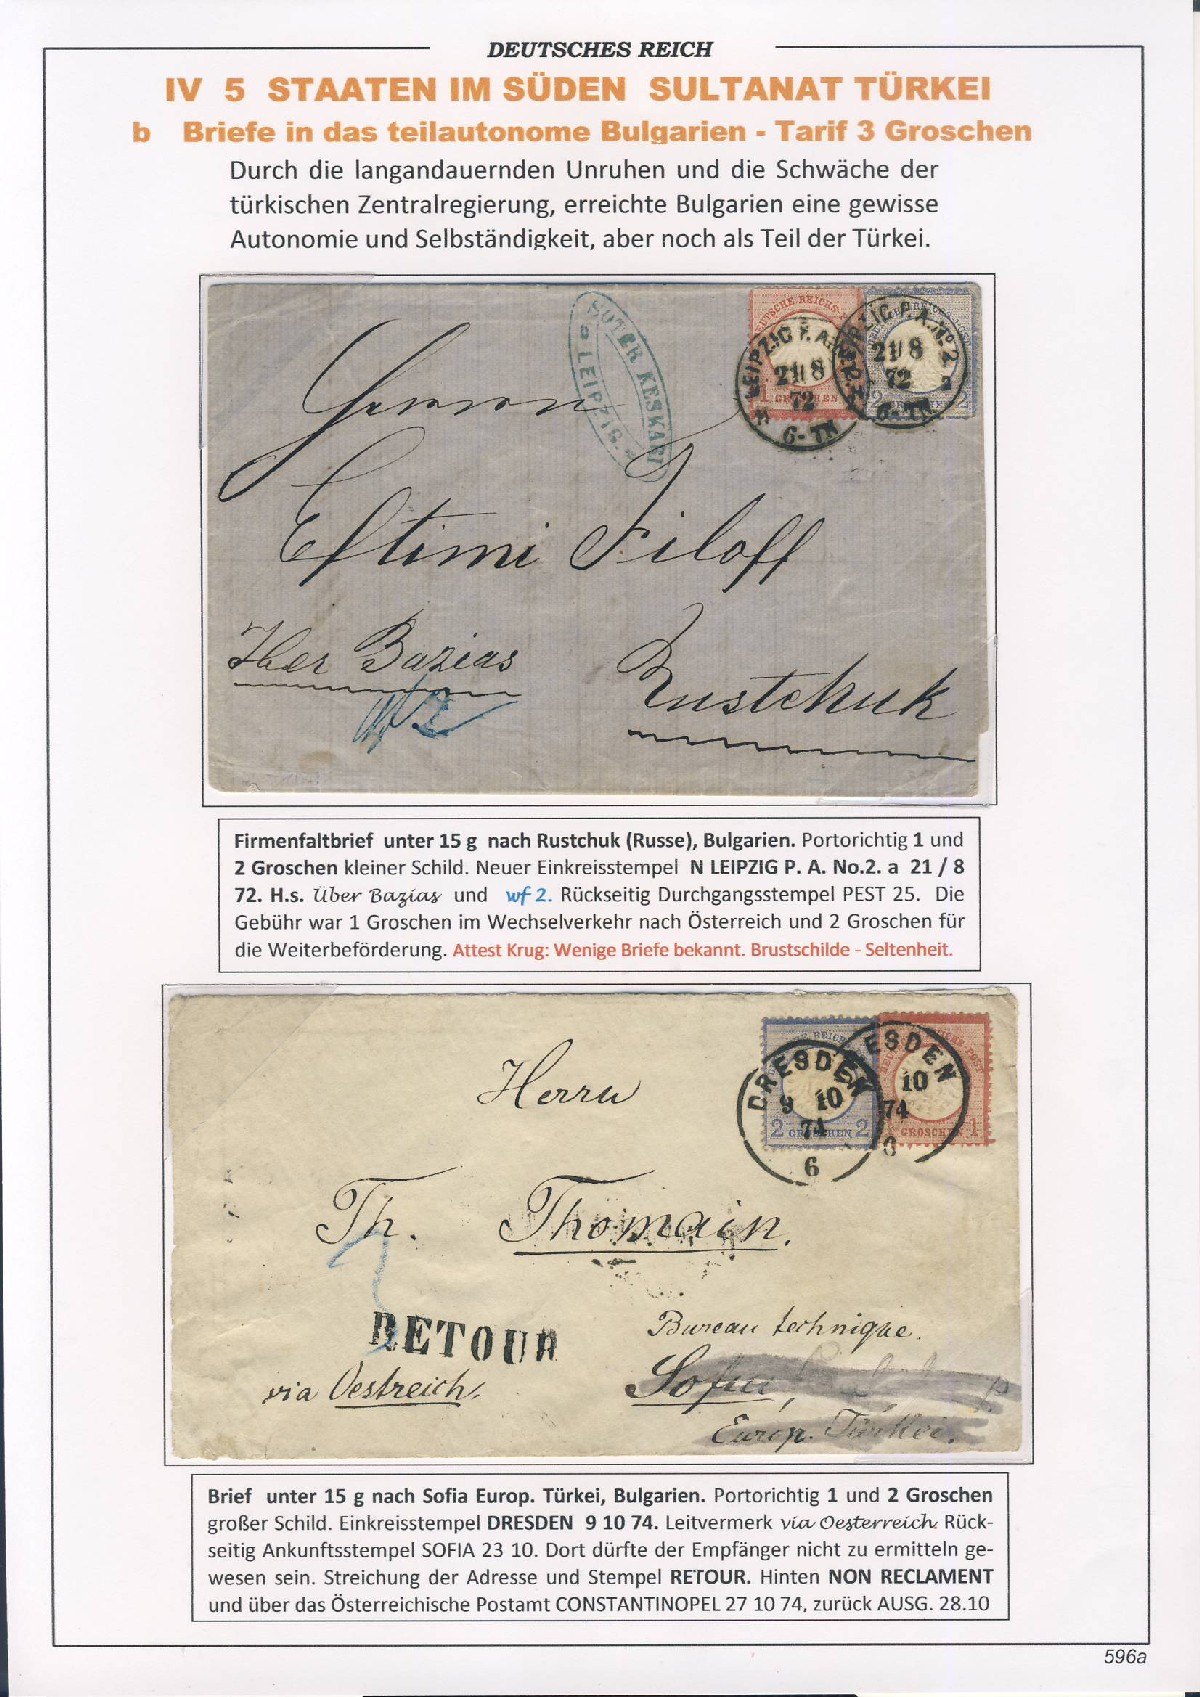 DEUTSCHES REICH
IV 5 STAATEN IM SÜDEN SULTANAT TÜRKEI
b Briefe in das teilautonome Bulgarien - Tarif 3 Groschen
Durch die langandauernden Unruhen und die Schwäche der
türkischen Zentralregierung, erreichte Bulgarien eine gewisse
Autonomie und Selbständigkeit, aber noch als Teil der Türkei.
SOTER KESKARI
LEIPZIG
LEIPZIG P. A. No. 2
21 8
72
6-7N
LEIPZIG P. A. No. 2
21 8
72
6-7N
Herrn
Eftimi Filoff
Über Bazias
Rustchuk
wf 2
Firmenfaltbrief unter 15 g nach Rustchuk (Russe), Bulgarien. Portorichtig 1 und
2 Groschen kleiner Schild. Neuer Einkreisstempel N LEIPZIG P. A. No.2. a 21 / 8
72. H.s. Über Bazias und wf 2. Rückseitig Durchgangsstempel PEST 25. Die
Gebühr war 1 Groschen im Wechselverkehr nach Österreich und 2 Groschen für
die Weiterbeförderung. Attest Krug: Wenige Briefe bekannt. Brustschilde - Seltenheit.
DRESDEN
9 10
74
6
2 GROSCHEN 2
ESDEN
10
74
6
GROSCHEN 1
Herrn
Th. Thomain.
RETOUR
Bureau technique.
via Oestreich.
Sofia,
Europ. Türkei.
Brief unter 15 g nach Sofia Europ. Türkei, Bulgarien. Portorichtig 1 und 2 Groschen
großer Schild. Einkreisstempel DRESDEN 9 10 74. Leitvermerk via Oesterreich. Rück-
seitig Ankunftsstempel SOFIA 23 10. Dort dürfte der Empfänger nicht zu ermitteln ge-
wesen sein. Streichung der Adresse und Stempel RETOUR. Hinten NON RECLAMENT
und über das Österreichische Postamt CONSTANTINOPEL 27 10 74, zurück AUSG. 28.10
596a